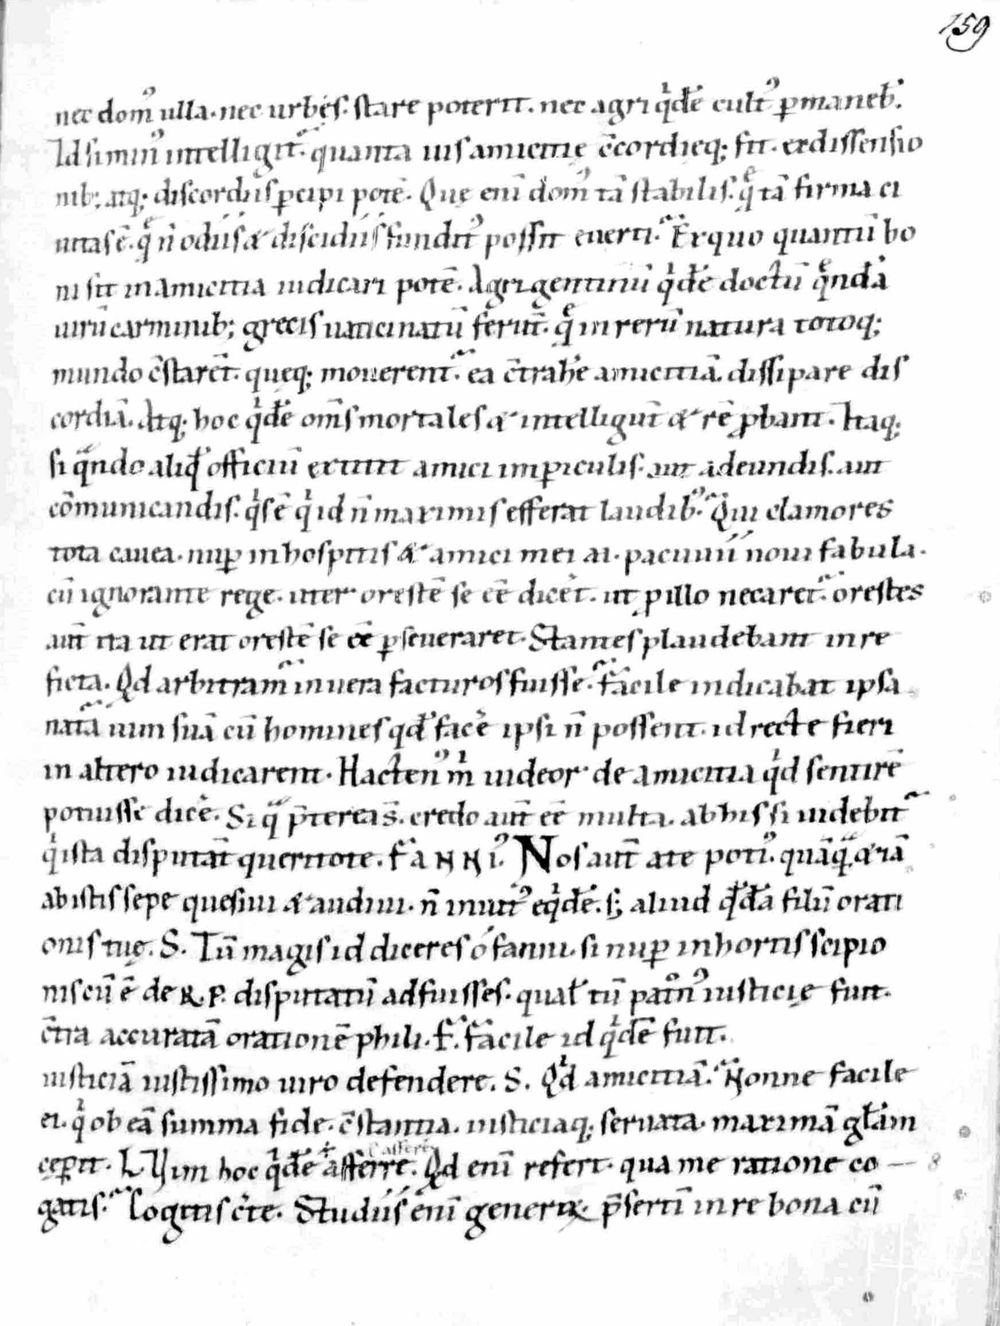 159
nec domꝰ ulla. nec urbes. stare poterit. nec agri qͥdē cultꝰ ꝑmaneb̄.
Id si minꝰ intelligit̄. quanta uis amicitię c̄cordięq; sit. ex dissensio
nib; atq; discordiis ꝑcipi potē. Quę eni domꝰ tā stabilis. q̄ tā firma ci
uitas ē. q̄ n̄ odiis & discidiis funditꝰ possit euerti. Ex quo quantū bo
ni sit in amicitia iudicari potē. Agrigentinū qͥdē doctū q̄ndā
uirū carminib; grecis uaticinatū ferūt. q̄ in rerū natura totoq;
mundo c̄starēt. quęq; mouerent̄. ea c̄trahē amicitiā. dissipare dis
cordiā. Atq; hoc qͥdē om̄s mortales & intelligūt & rē ꝓbant. Itaq;
si q̄ndo aliqd̄ officiū extitit amici in ꝑiculis. aut adeundis. aut
cōmunicandis. qͥs ē qͥ id n̄ maximis efferat laudibꝰ. Qui clamores
tota cauea. nuꝑ in hospitis & amici mei .M. pacuuii noui fabula.
cū ignorante rege. uter orestē se eē dicēt. ut ꝓ illo necaret̄. orestes
aūt ita ut erat orestē se eē ꝑseueraret. Stantes plaudebant in re
ficta. Qd arbitram̄ in uera facturos fuisse. facile indicabat ipsa
natā uim suā cū homines qd̄ facē ipsi n̄ possent. id recte fieri
in altero iudicarent. Hactenꝰ m̄ uideor de amicitia qͥd sentirē
potuisse dicē. Si q̄ p̄terea s̄. credo aūt eē multa. ab his si uidebit̄
qͥ ista disputāt queritote. FANNIꝰ Nos aūt a te potiꝰ. quāq̄. & iā
ab istis sępe quesiui & audiui. n̄ inuitꝰ eqͥdē. s; aliud qd̄dā filū orati
onis tuę. S. Tū magis id diceres o fanni. si nuꝑ in hortis scipio
nis cū ē de R.P. disputatū adfuisses. qual̄ tū patn̄ꝰ iusticię fuit.
c̄tra accuratā orationē phili. F. facile id qͥdē fuit.
iusticiā iustissimo uiro defendere. S. Qͥd amicitiā. Nonne facile
ei. qͥ ob eā summa fide. c̄stantia. iusticiaq; seruata. maximā gl̄am
cęꝑit. Vim hoc qͥdē afferre. Qd eni refert. qua me ratione co
gatis. Cogitis c̄te. Studiis eni generꝝ. p̄sertī in re bona cū